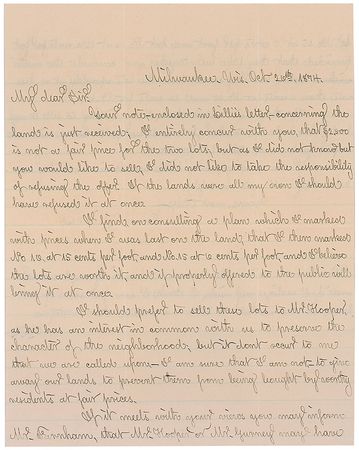 Milwaukee Wis. Oct 20th, 1894.
My dear Sir:
Your note-enclosed in billies letter-concerning the
land is just received; I entirely concur with you, that $2,200
is not a fair price for the two lots, but as I did not know but
you would like to sell, I did not like to take the responsibility
of refusing the offer. If the lands were all my own I should
have refused it at once.
I find on consulting a plan which I marked
with prices when I was last on the land, that I then marked
No 13, at 15 cents per foot, and No. 15 at 6 cents per foot, and I believe
the lots are worth it, and if properly offered to the public will
bring it at once.
I should prefer to sell these lots to Mr. Hooper,
as he has an interest in common with us to preserve the
character of the neighborhood, but it dont occur to me
that we are called upon- I am sure that I am not- to give
away our lands to prevent them from being bought by worthy
residents at fair prices.
If it meets with your views you may inform
Mr. Farnham, that Mr. Hooper or Mr. Gurney may have